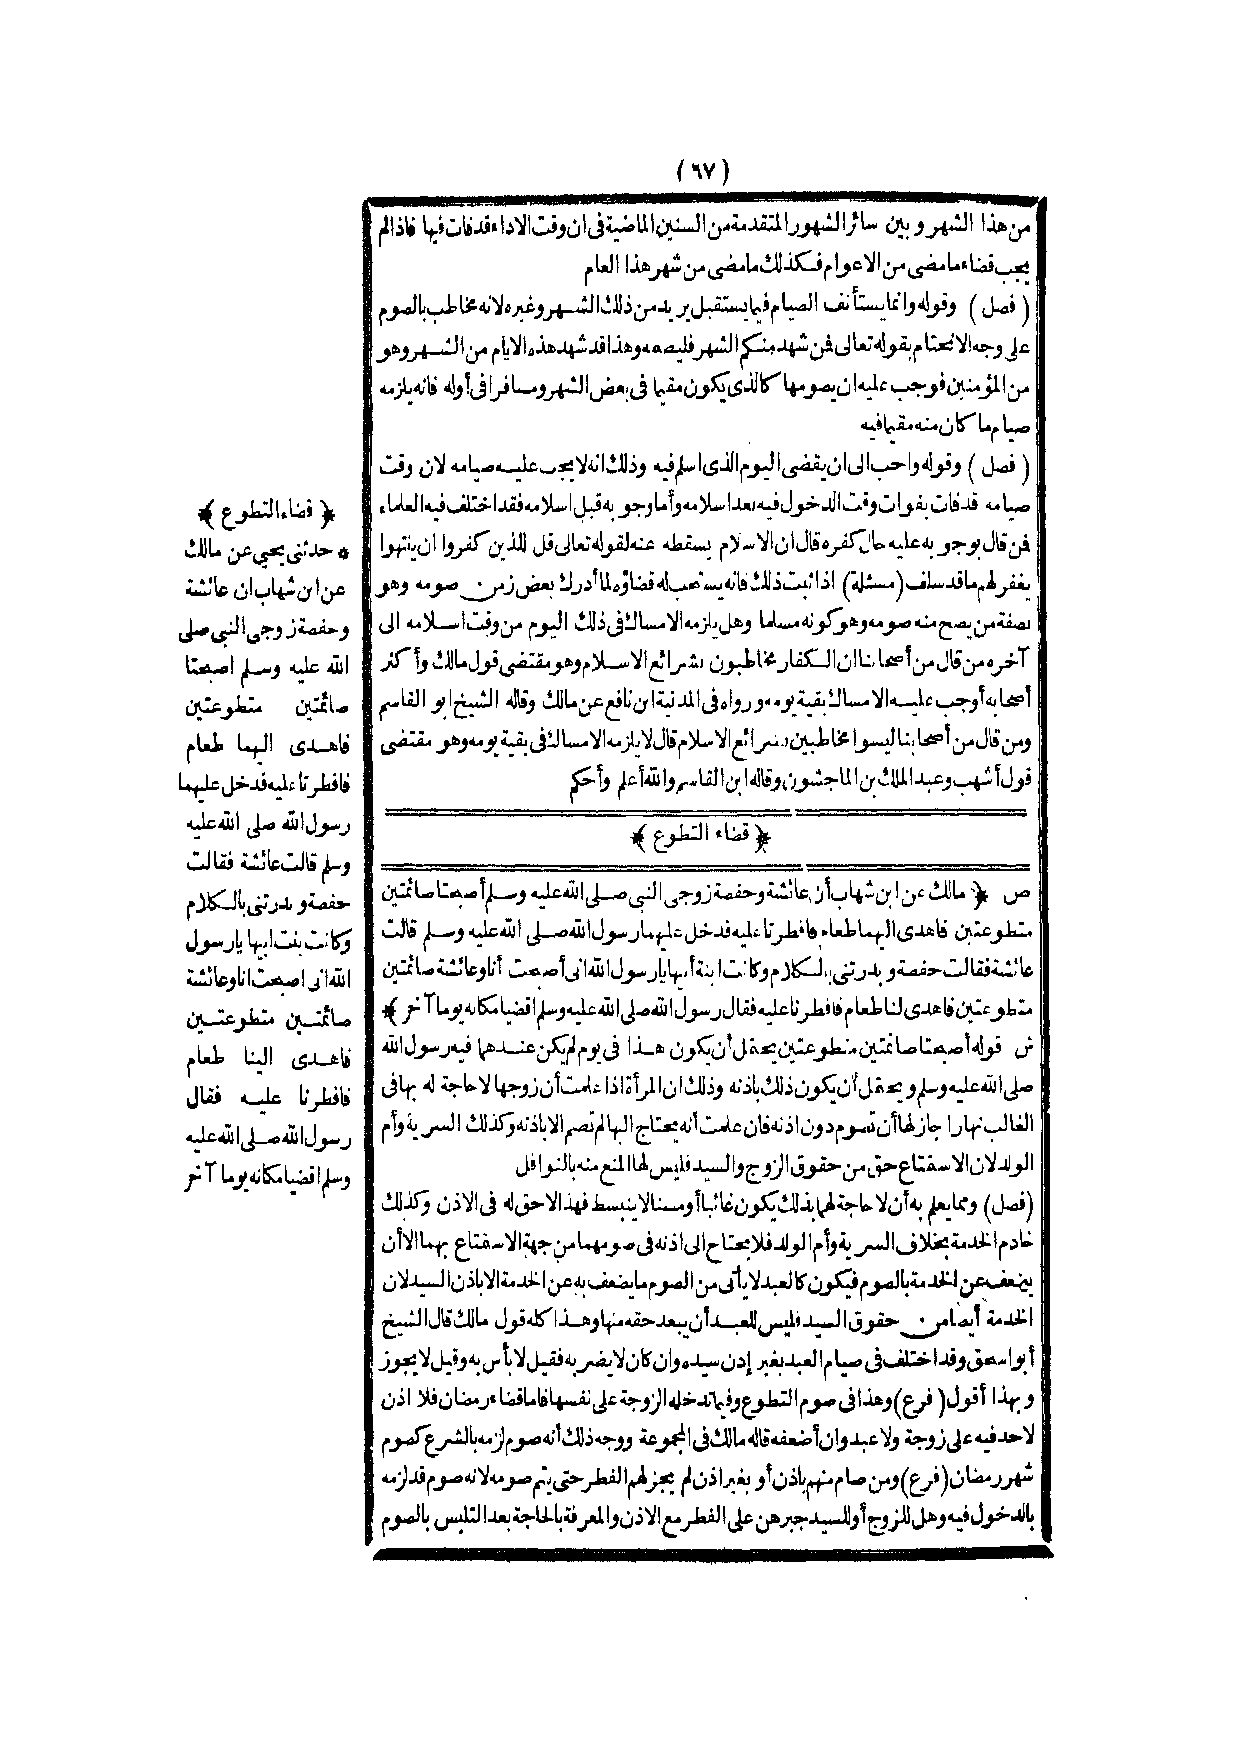 (٦٧)
من هذا الشهر و بين سائر الشهور المتقدمة من السنين الماضية فى ان وقت الاداء قد فات فيها فاذا لم
يجب قضاء ما مضى من الاعوام فكذلك ما مضى من شهر هذا العام
( فصل ) وقوله وانما يستأنف الصيام فيما يستقبل يريد من ذلك الشهر وغيره لانه مخاطب بالصوم
على وجه الانحتام بقوله تعالى فمن شهد منكم الشهر فليصمه وهذا قد شهد هذه الايام من الشهر وهو
من المؤمنين فوجب عليه ان يصومها كالذى يكون مقيما فى بعض الشهر ومسافرا فى أوله فانه يلزمه
صيام ما كان منه مقيما فيه
( فصل ) وقوله واحب الى ان يقضى اليوم الذى اسلم فيه وذلك انه لا يجب عليه صيامه لان وقت
صيامه قد فات بفوات وقت الدخول فيه بعد اسلامه وأما وجو به قبل اسلامه فقد اختلف فيه العلماء
فمن قال بوجو به عليه حال كفره قال ان الاسلام يسقطه عنه لقوله تعالى قل للذين كفروا ان ينتهوا
يغفر لهم ما قد سلف (مسئلة) اذا ثبت ذلك فانه يستحب له قضاؤه لما أدرك بعض زمن صومه وهو
بصفة من يصح منه صومه وهو كونه مسلما وهل يلزمه الامساك فى ذلك اليوم من وقت اسلامه الى
آخره من قال من أصحابنا ان الكفار مخاطبون بشرائع الاسلام وهو مقتضى قول مالك وأكثر
أصحابه أوجب عليه الامساك بقية يومه ورواه فى المدنية ابن نافع عن مالك وقاله الشيخ ابو القاسم
ومن قال من أصحابنا ليسوا مخاطبين بشرائع الاسلام قال لا يلزمه الامساك فى بقية يومه وهو مقتضى
قول أشهب وعبد الملك بن الماجشون وقاله ابن القاسم والله أعلم وأحكم
﴿ قضاء التطوع ﴾
ص ﴿ مالك عن ابن شهاب أن عائشة وحفصة زوجى النبى صلى الله عليه وسلم أصبحتا صائمتين
متطوعتين فاهدى اليهما طعام فافطرتا عليه فدخل عليهما رسول الله صلى الله عليه وسلم قالت
عائشة فقالت حفصة و بدرتنى بالكلام وكانت ابنة أبيها يا رسول الله انى أصبحت أنا وعائشة صائمتين
متطوعتين فاهدى لنا طعام فافطرنا عليه فقال رسول الله صلى الله عليه وسلم اقضيا مكانه يوما آخر ﴾
ش قوله أصبحتا صائمتين متطوعتين يحتمل أن يكون هذا فى يوم لم يكن عندهما فيه رسول الله
صلى الله عليه وسلم و يحتمل أن يكون ذلك باذنه وذلك ان المرأة اذا علمت أن زوجها لا حاجة له بها فى
الغالب نهارا جاز لها أن تصوم دون اذنه فان علمت أنه يحتاج اليها لم تصم الا باذنه وكذلك السرية وأم
الولد لان الاستمتاع حق من حقوق الزوج والسيد فليس لها المنع منه بالنوافل
(فصل) ومما يعلم به أن لا حاجة لهما بذلك يكون غائبا أو مسنا لا ينبسط فهذا لاحق له فى الاذن وكذلك
خادم الخدمة بخلاف السرية وأم الولد فلا يحتاج الى اذنه فى صومهما من جهة الاستمتاع بهما الا أن
يضعف عن الخدمة بالصوم فيكون كالعبد لا يأتى من الصوم ما يضعف به عن الخدمة الا باذن السيد لان
الخدمة أيضا من حقوق السيد فليس للعبد أن يبعد حقه منها وهذا كله قول مالك قال الشيخ
أبو اسحق وقد اختلف فى صيام العبد بغير إذن سيده وان كان لا يضر به فقيل لا بأس به وقيل لا يجوز
وبهذا أقول ( فرع ) وهذا فى صوم التطوع وفيما تدخله الزوجة على نفسها فاما قضاء رمضان فلا اذن
لاحد فيه على زوجة ولا عبد وان أضعفه قاله مالك فى المجموعة ووجه ذلك أنه صوم لزمه بالشرع كصوم
شهر رمضان (فرع) ومن صام منهم باذن أو بغير اذن لم يجز لهم الفطر حتى يتم صومه لانه صوم قد لزمه
بالدخول فيه وهل للزوج أو للسيد جبرهن على الفطر مع الاذن والمعرفة بالحاجة بعد التلبس بالصوم
﴿ قضاء التطوع ﴾
* حدثنى يحيى عن مالك
عن ابن شهاب ان عائشة
وحفصة زوجى النبى صلى
الله عليه وسلم اصبحتا
صائمتين متطوعتين
فاهدى اليهما طعام
فافطرتا عليه فدخل عليهما
رسول الله صلى الله عليه
وسلم قالت عائشة فقالت
حفصة و بدرتنى بالكلام
وكانت بنت ابيها يا رسول
الله انى اصبحت انا وعائشة
صائمتين متطوعتين
فاهدى الينا طعام
فافطرنا عليه فقال
رسول الله صلى الله عليه
وسلم اقضيا مكانه يوما آخر